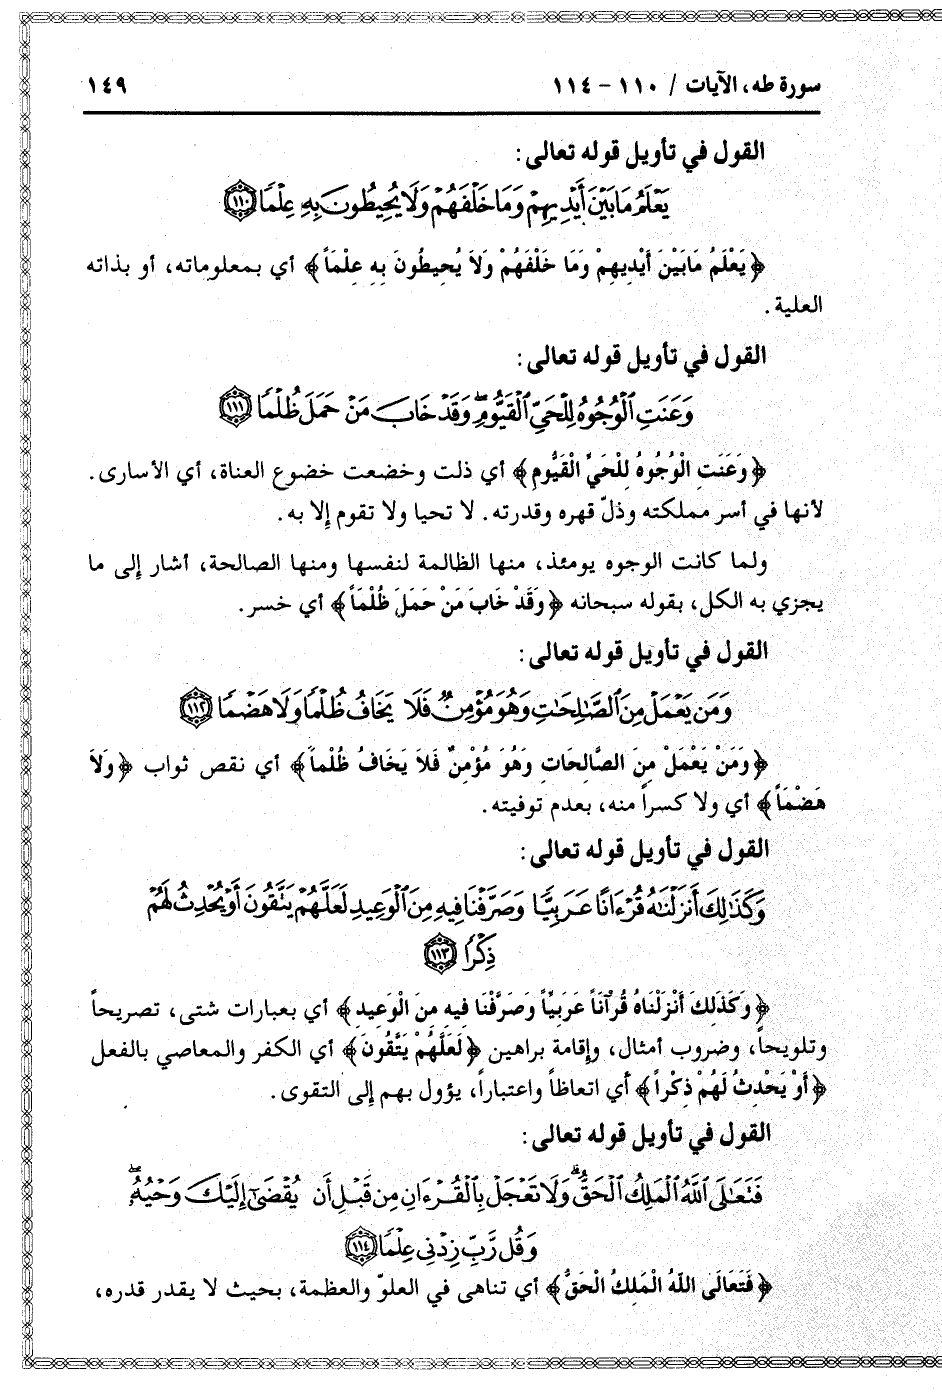 سورة طه، الآيات / ١١٠ – ١١٤ ١٤٩
القول في تأويل قوله تعالى:
يَعْلَمُ مَا بَيْنَ أَيْدِيهِمْ وَمَا خَلْفَهُمْ وَلَا يُحِيطُونَ بِهِ عِلْمًا ١١٠
﴿يَعْلَمُ مَابَيْنَ أَيْدِيهِمْ وَمَا خَلْفَهُمْ وَلاَ يُحِيطُونَ بِهِ عِلْمَاً﴾ أي بمعلوماته، أو بذاته
العلية.
القول في تأويل قوله تعالى:
وَعَنَتِ ٱلْوُجُوهُ لِلْحَيِّ ٱلْقَيُّومِ ۖ وَقَدْ خَابَ مَنْ حَمَلَ ظُلْمًا ١١١
﴿وَعَنَتِ الْوُجُوهُ لِلْحَيِّ الْقَيُّومِ﴾ أي ذلت وخضعت خضوع العناة، أي الأسارى.
لأنها في أسر مملكته وذلّ قهره وقدرته. لا تحيا ولا تقوم إلا به.
ولما كانت الوجوه يومئذ، منها الظالمة لنفسها ومنها الصالحة، أشار إلى ما
يجزي به الكل، بقوله سبحانه ﴿وَقَدْ خَابَ مَنْ حَمَلَ ظُلْمَاً﴾ أي خسر.
القول في تأويل قوله تعالى:
وَمَن يَعْمَلْ مِنَ ٱلصَّٰلِحَٰتِ وَهُوَ مُؤْمِنٌ فَلَا يَخَافُ ظُلْمًا وَلَا هَضْمًا ١١٢
﴿وَمَنْ يَعْمَلْ مِنَ الصَّالِحَاتِ وَهُوَ مُؤْمِنٌ فَلاَ يَخَافُ ظُلْماً﴾ أي نقص ثواب ﴿وَلاَ
هَضْمَاً﴾ أي ولا كسراً منه، بعدم توفيته.
القول في تأويل قوله تعالى:
وَكَذَٰلِكَ أَنزَلْنَٰهُ قُرْءَانًا عَرَبِيًّا وَصَرَّفْنَا فِيهِ مِنَ ٱلْوَعِيدِ لَعَلَّهُمْ يَتَّقُونَ أَوْ يُحْدِثُ لَهُمْ
ذِكْرًا ١١٣
﴿وَكَذَلِكَ أَنْزَلْنَاهُ قُرْآنَاً عَرَبِيَّاً وَصَرَّفْنَا فِيهِ مِنَ الْوَعِيدِ﴾ أي بعبارات شتى، تصريحاً
وتلويحاً، وضروب أمثال، وإقامة براهين ﴿لَعَلَّهُمْ يَتَّقُونَ﴾ أي الكفر والمعاصي بالفعل
﴿أَوْ يَحْدِثُ لَهُمْ ذِكْراً﴾ أي اتعاظاً واعتباراً، يؤول بهم إلى التقوى.
القول في تأويل قوله تعالى:
فَتَعَٰلَى ٱللَّهُ ٱلْمَلِكُ ٱلْحَقُّ ۗ وَلَا تَعْجَلْ بِٱلْقُرْءَانِ مِن قَبْلِ أَن يُقْضَىٰٓ إِلَيْكَ وَحْيُهُۥ ۖ
وَقُل رَّبِّ زِدْنِى عِلْمًا ١١٤
﴿فَتَعَالَى اللَّهُ الْمَلِكُ الْحَقُّ﴾ أي تناهى في العلوّ والعظمة، بحيث لا يقدر قدره،